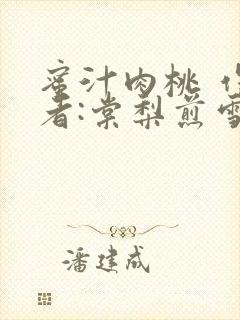 蜜汁肉桃 作
者:棠梨煎雪
潘建成